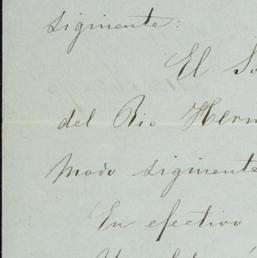 siguiente:
El So
del Rio Hern
Modo siguiente
En efectivo